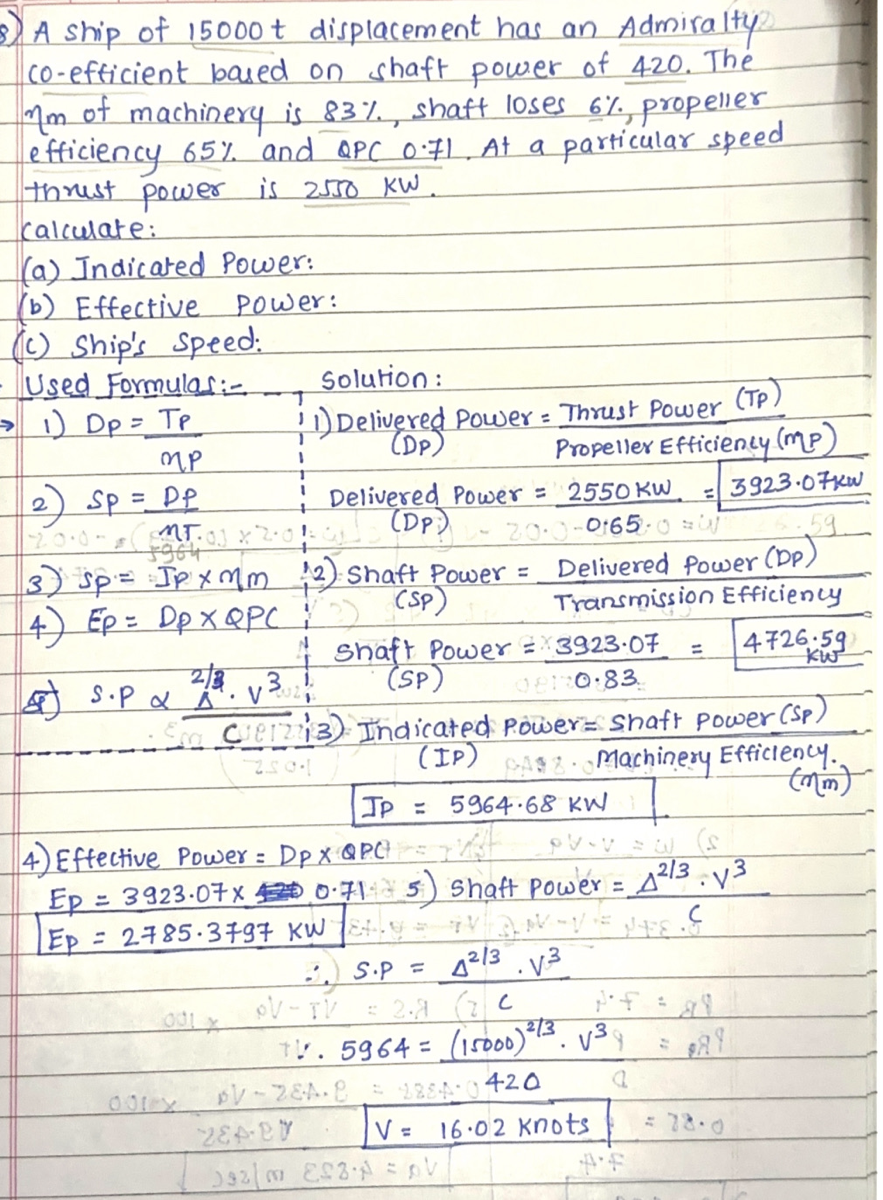 8) A ship of 15000t displacement has an Admiralty
co-efficient based on shaft power of 420. The
ηm of machinery is 83%, shaft loses 6%, propeller
efficiency 65% and QPC 0.71. At a particular speed
thrust power is 2550 KW.
Calculate:
(a) Indicated Power:
(b) Effective Power:
(c) Ship's Speed:
Used Formulas:-
→ 1) Dp = Tp
ηp
2) Sp = Dp
ηT
5964
3) Sp = Ip × ηm
4) Ep = Dp × QPC
5) S.P ∝ Δ^2/3 . V^3
C
Solution:
1) Delivered Power = Thrust Power (Tp)
(Dp) Propeller Efficiency (ηp)
Delivered Power = 2550 KW = 3923.07 KW
(Dp) 0.65
2) Shaft Power = Delivered Power (Dp)
(SP) Transmission Efficiency
Shaft Power = 3923.07 = 4726.59 KW
(SP) 0.83
3) Indicated Power = Shaft Power (Sp)
(IP) Machinery Efficiency. (ηm)
Ip = 5964.68 KW
4) Effective Power = Dp × QPC
Ep = 3923.07 × 0.71
Ep = 2785.3797 KW
5) Shaft Power = Δ^2/3 . V^3
C
∴ S.P = Δ^2/3 . V^3
C
5964 = (15000)^2/3 . V^3
420
V = 16.02 Knots